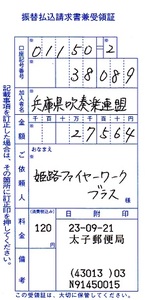 振替払込請求書兼受領証
口座記号番号
01150=2
38089
加入者名
兵庫県吹奏楽連盟
金額
27564
おなまえ
ご依頼人
姫路ファイヤーワーク
ブラス 様
料金
(消費税込み)
120
円
日附印
23-09-21
太子郵便局
備考
(43013)03
N91450015
記載事項を訂正した場合は、その箇所に訂正印を押してください。
この受領証は、大切に保管してください。